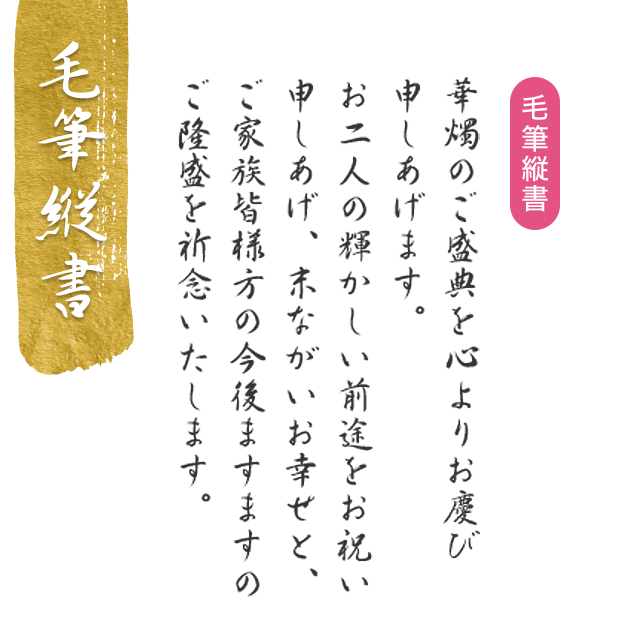 毛筆縦書
華燭のご盛典を心よりお慶び
申しあげます。
お二人の輝かしい前途をお祝い
申しあげ、末ながいお幸せと、
ご家族皆様方の今後ますますの
ご隆盛を祈念いたします。
毛筆縦書